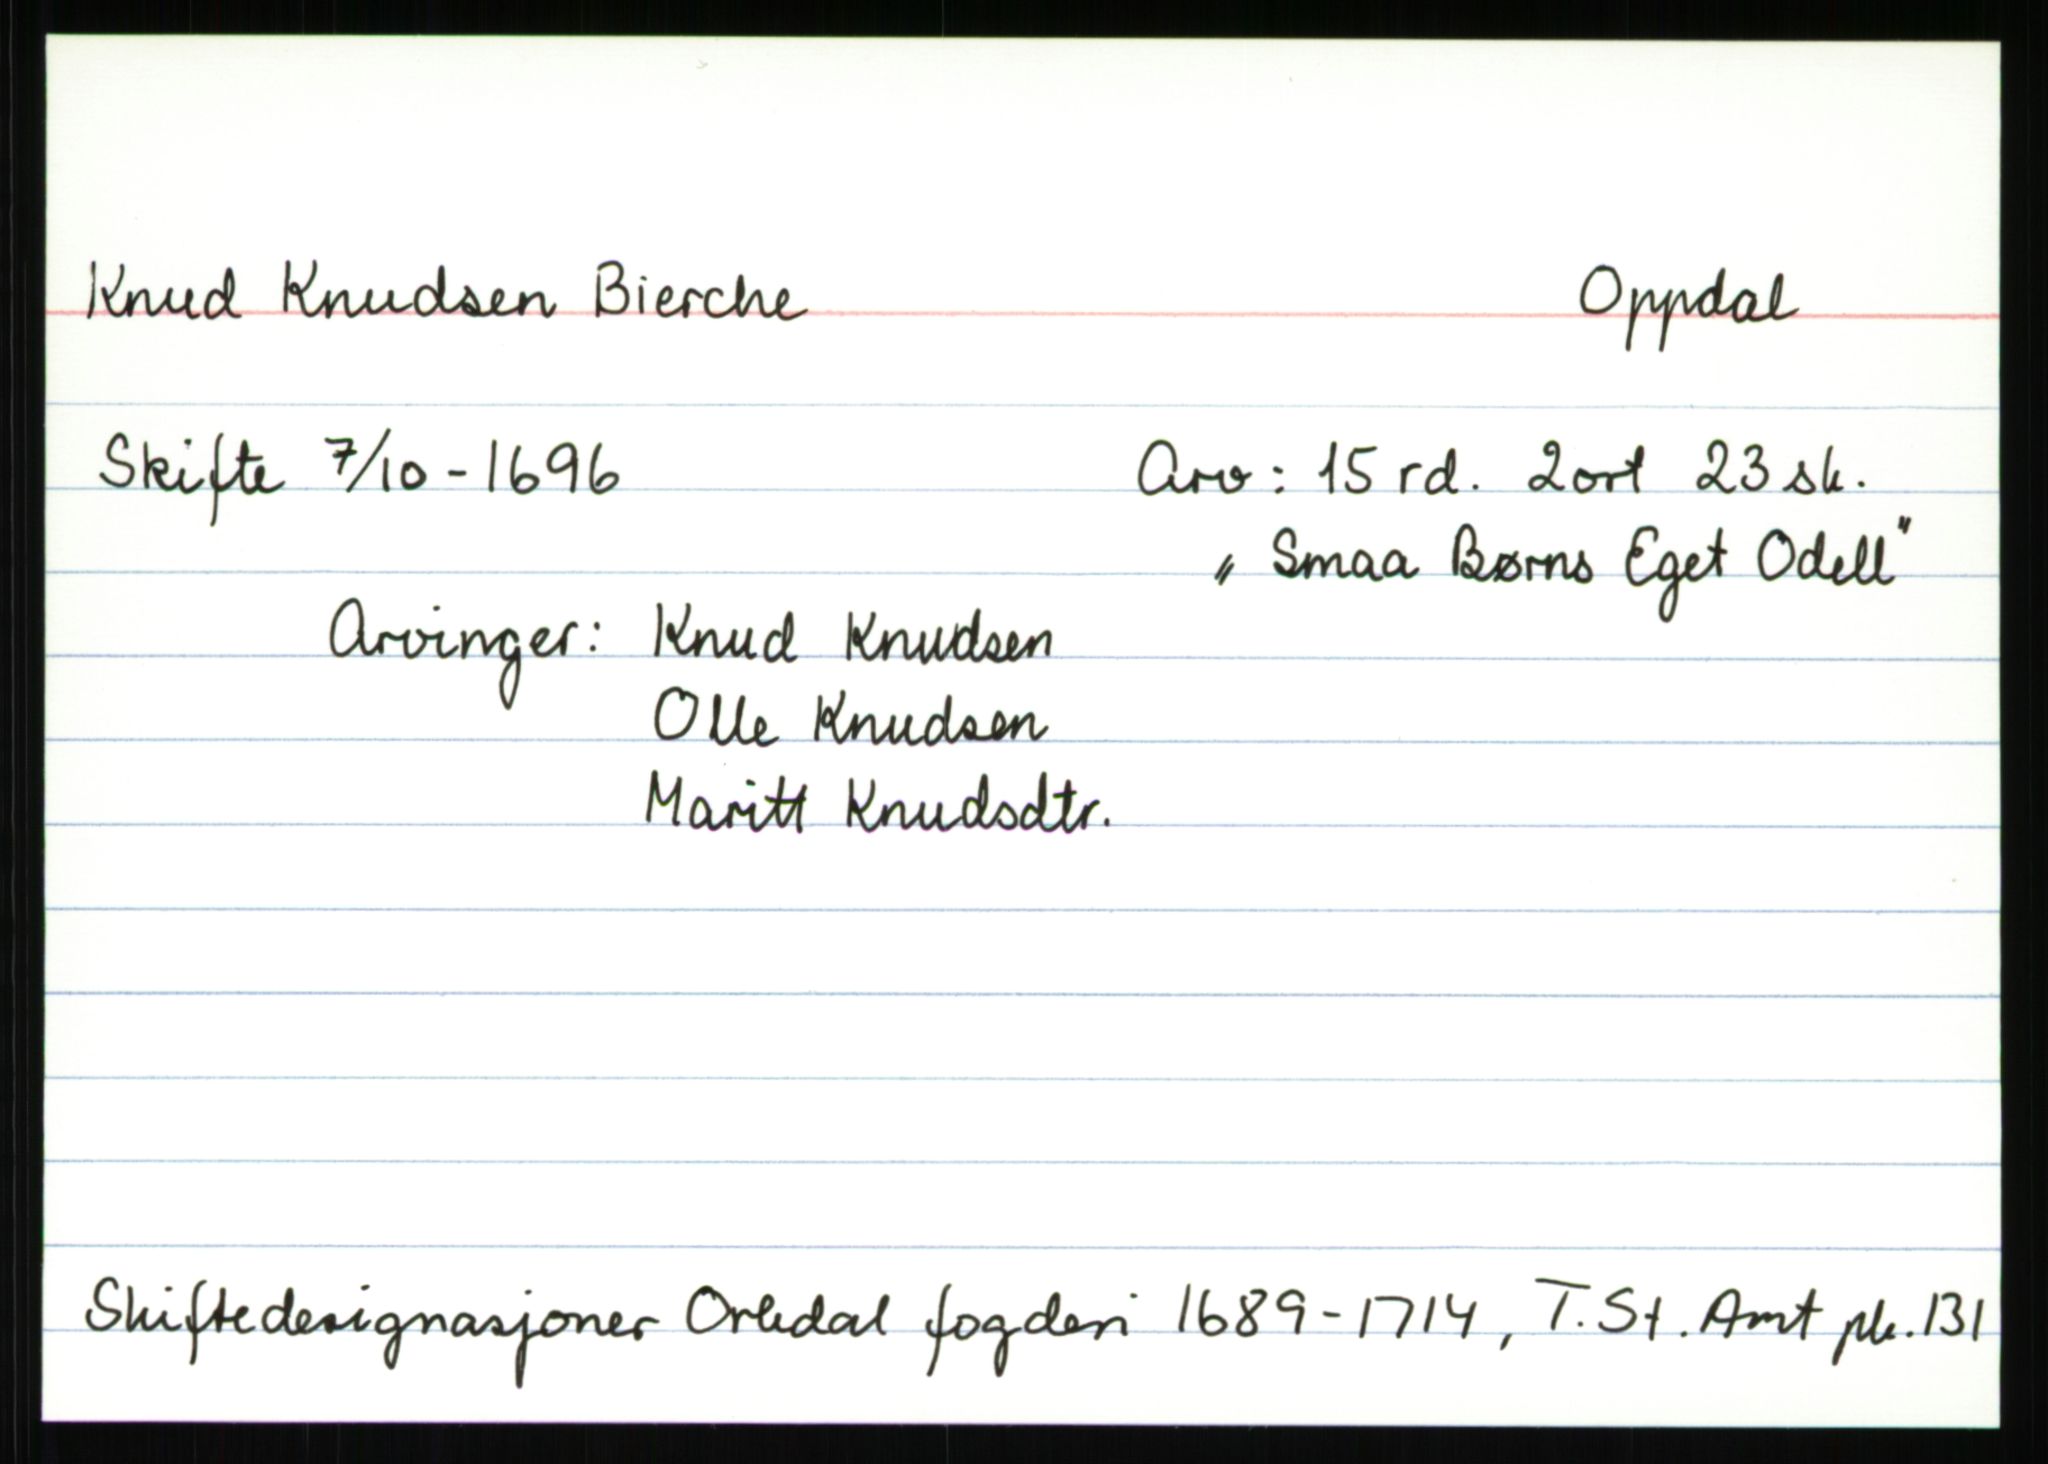 Knud Knudsen Bierche Oppdal
Skifte 7/10-1696 Arv: 15 rd. 2 ort 23 sk.
„Smaa Børns Eget Odell"
Arvinger: Knud Knudsen
Olle Knudsen
Maritt Knudsdtr.
Skiftedesignasjoner Orkdal fogderi 1689-1714, T. St. Amt pk. 131